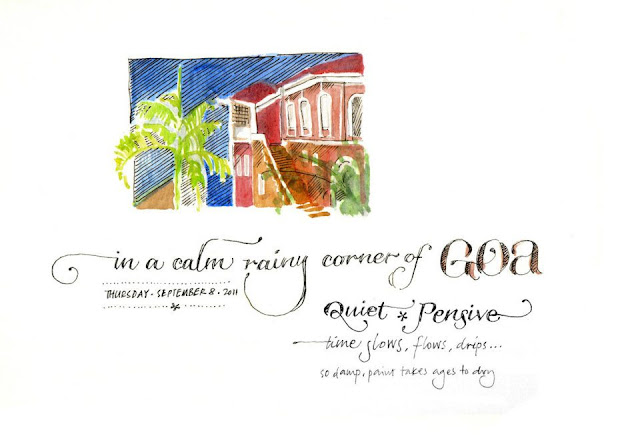 in a calm rainy corner of GOA
THURSDAY · SEPTEMBER 8 · 2011
Quiet * Pensive
time slows, flows, drips...
so damp, paint takes ages to dry